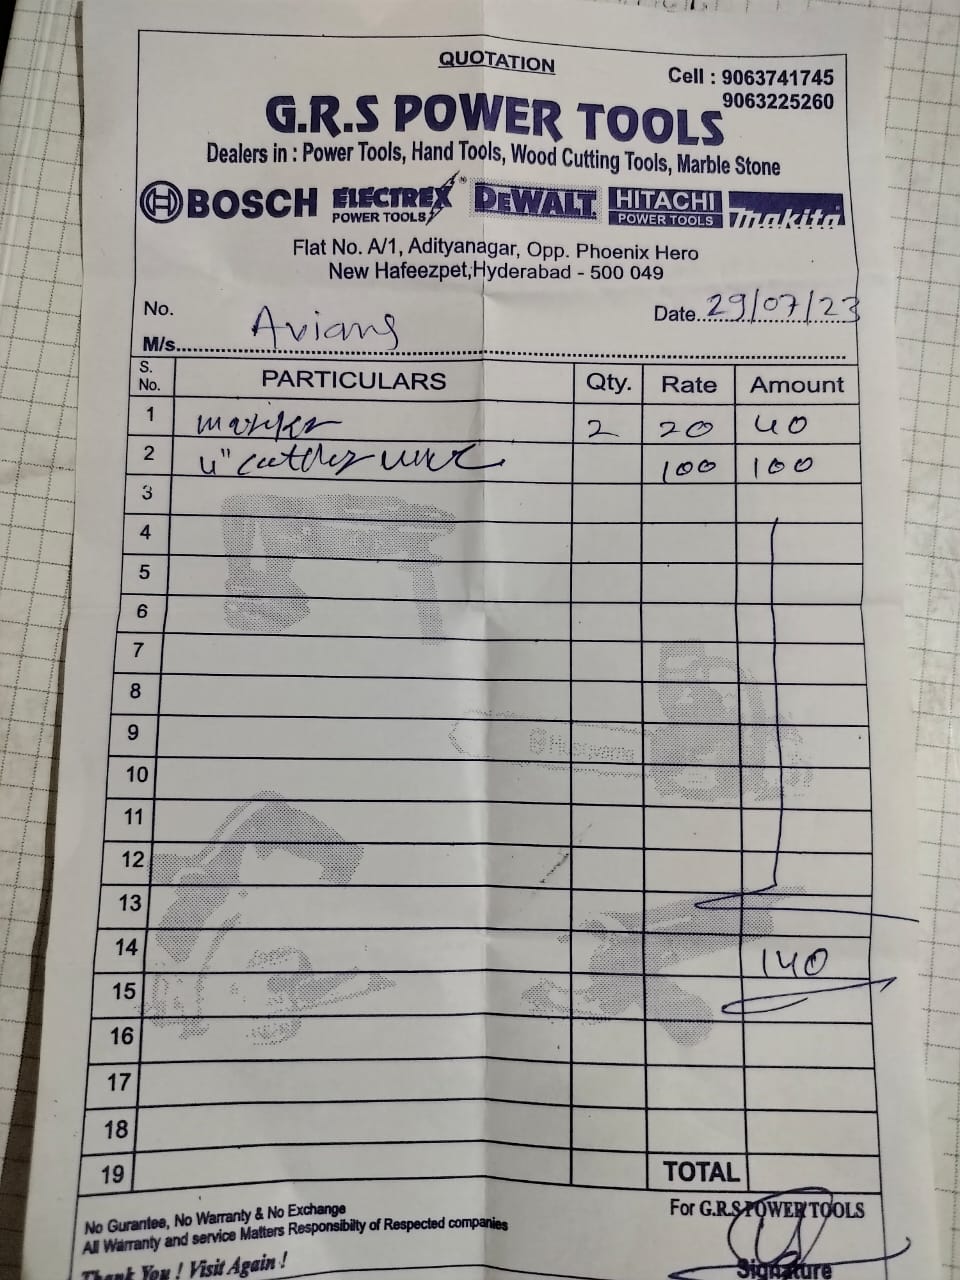 QUOTATION
Cell : 9063741745
9063225260
G.R.S POWER TOOLS
Dealers in : Power Tools, Hand Tools, Wood Cutting Tools, Marble Stone
BOSCH ELECTREX POWER TOOLS DEWALT HITACHI POWER TOOLS makita
Flat No. A/1, Adityanagar, Opp. Phoenix Hero
New Hafeezpet,Hyderabad - 500 049
No. Date..29/07/23
M/s. Avians
S. No. PARTICULARS Qty. Rate Amount
1 marker 2 20 40
2 4" 100 100
3
4
5
6
7
8
9
10
11
12
13
14 140
15
16
17
18
19 TOTAL
No Gurantee, No Warranty & No Exchange
All Warranty and service Matters Responsibilty of Respected companies
Thank You ! Visit Again !
For G.R.S POWER TOOLS
Signature